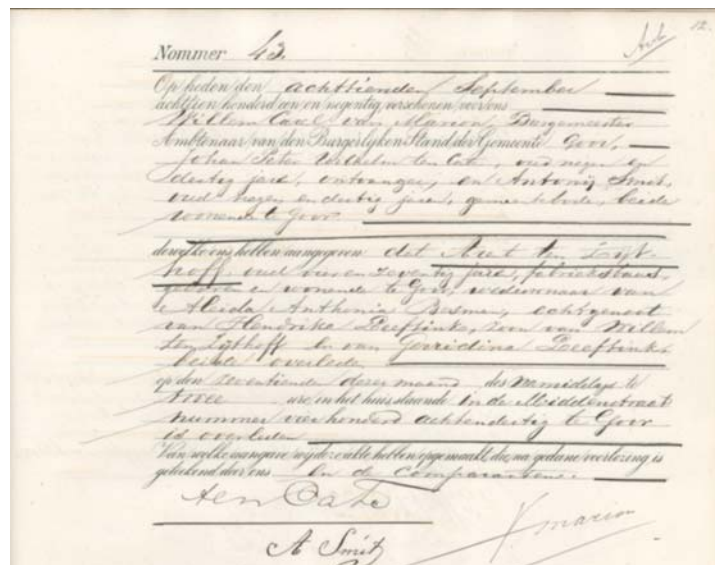 12.
Nommer 43.
Op heden den achttienden September
achttien honderd een en negentig, verschenen voor ons
Willem Carel van Marion, Burgemeester
Ambtenaar van den Burgerlijken Stand der Gemeente Goor,
Johan Peter Wilhelm ten Cate, oud negen en
dertig jaar, ontvanger, en Antonij Smit,
oud negen en dertig jaar, gemeentebode, beide
wonende te Goor
dewelke ons hebben aangegeven dat ten Zijt
hoff, oud vier en zeventig jaar, fabrieksbaas,
geboren en wonende te Goor, weduwnaar van
Aleida Anthonia Bosmer, echtgenoot
van Hendrika Leeftink, zoon van Willem
ten Zijthoff en van Gerridina Leeftink,
beide overleden
op den zeventiende dezer maand des namiddags te
twee ure, in het huis staande in de Middenstraat
nummer vierhonderd achtendertig te Goor
is overleden
Van welke aangave wij deze akte hebben opgemaakt, die, na gedane voorlezing is
geteekend door ons en de comparanten.
ten Cate
A Smit
Marion